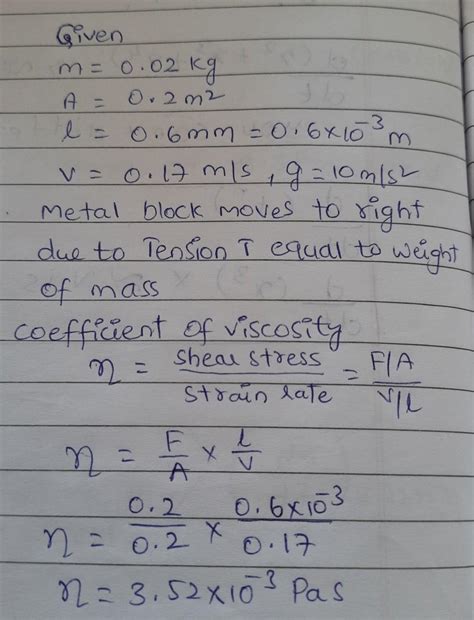 Given
m = 0.02 kg
A = 0.2 m²
l = 0.6mm = 0.6×10⁻³ m
v = 0.17 m/s , g = 10 m/s²
Metal block moves to right
due to Tension T equal to weight
of mass
coefficient of viscosity
η = shear stress / strain rate = F/A / V/l
η = F/A × l/V
η = 0.2/0.2 × 0.6×10⁻³/0.17
η = 3.52×10⁻³ Pas